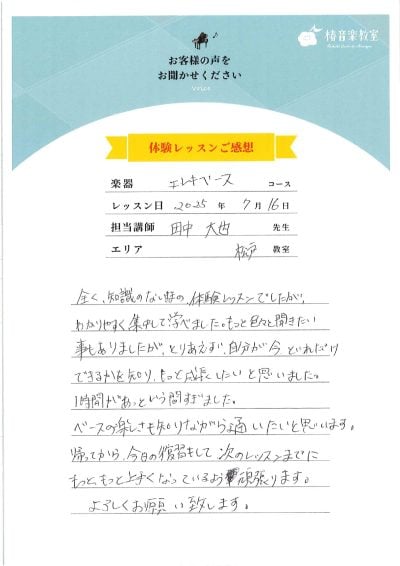 椿音楽教室
お客様の声を
お聞かせください
voice
体験レッスンご感想
楽器 エレキベース コース
レッスン日 2025 年 7月 16日
担当講師 田中 大也 先生
エリア 松戸 教室
全く、知識のない時の、体験レッスンでしたが、
わかりやすく集中して学べました。もっと色々と聞きたい
事もありましたが、とりあえず、自分が今 どれだけ
できるかを知り、もっと成長したいと思いました。
1時間があっという間すぎました。
ベースの楽しさも知りながら通いたいと思います。
帰ってから、今日の復習をして 次のレッスンまでに
もっと、もっと上手くなっているよう頑張ります。
よろしくお願い致します。